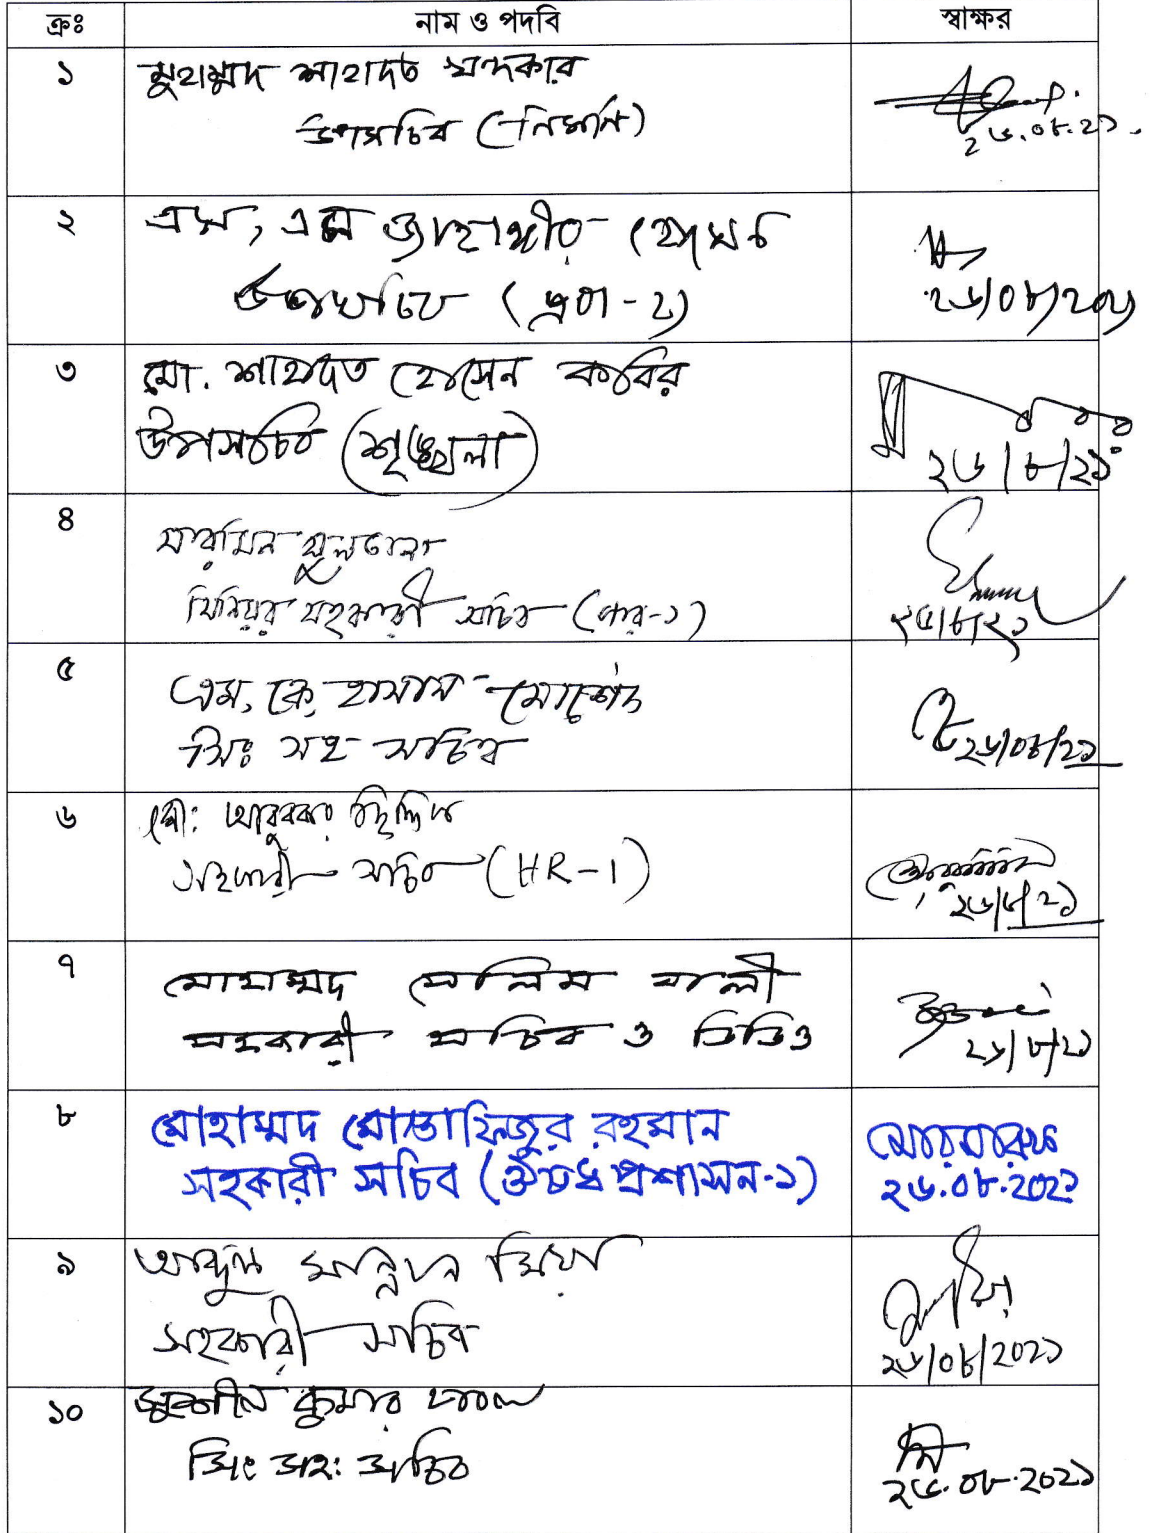 ক্রঃ নাম ও পদবি স্বাক্ষর
১ মুহাম্মদ শাহাদত খন্দকার
উপসচিব (নির্মাণ)
২৬.০৮.২১
২ এস, এম জাহাঙ্গীর হোসেন
উপসচিব (প্রশা-২)
২৬/০৮/২০২১
৩ মো. শাহাদত হোসেন কবির
উপসচিব (শৃঙ্খলা)
২৬/৮/২১
৪ শারমিন সুলতানা
সিনিয়র সহকারী সচিব (পার-১)
২৬/৮/২১
৫ এম, কে, হাসান মোর্শেদ
সিঃ সহ সচিব
২৬/০৮/২১
৬ মো: আবুবকর ছিদ্দিক
সহকারী সচিব (HR-1)
২৬/৮/২১
৭ মোহাম্মদ সেলিম আলী
সহকারী সচিব ও ডিডিও
২৬/৮/২১
৮ মোহাম্মদ মোস্তাফিজুর রহমান
সহকারী সচিব (ঔষধ প্রশাসন-১)
২৬.০৮.২০২১
৯ আব্দুল মান্নান মিয়া
সহকারী সচিব
২৬/০৮/২০২১
১০ কুমার
সিঃ সহ: সচিব
২৬.০৮.২০২১